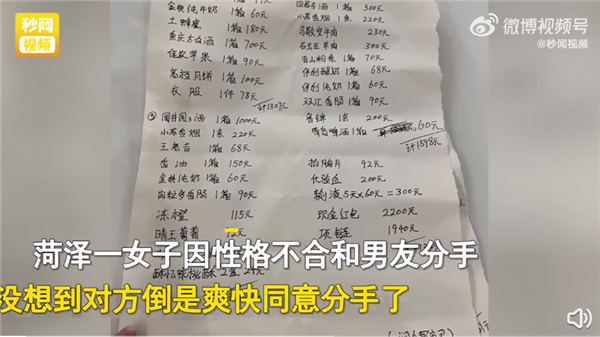 秒闻
视频
微博视频号
@秒闻视频
金典纯牛奶 1箱 60元
土蜂蜜 1箱 180元
重庆太白酒 1箱 700元
苹果 1箱 90元
高档月饼 1箱 100元
衣服 1件 78元
国井国3酒 1箱 1000元
小苏香烟 1条 220元
王老吉 1箱 70元
香油 1箱 150元
金典纯奶 1箱 60元
肉粒多香肠 1箱 90元
115元
晴王葡萄 12元
四君子酒 1箱 300元
小苏香烟 1条 220元
230元
300元
1箱 70元
伊利酸奶 1箱 68元
伊利纯奶 1箱 60元
双汇香肠 1箱 90元
200元
啤酒 1箱 60元
计1598元
拍胸片 92元
化验血 200元
输液5天x60元=300元
现金红包 2200元
项链 1940元
菏泽一女子因性格不合和男友分手
没想到对方倒是爽快同意分手了